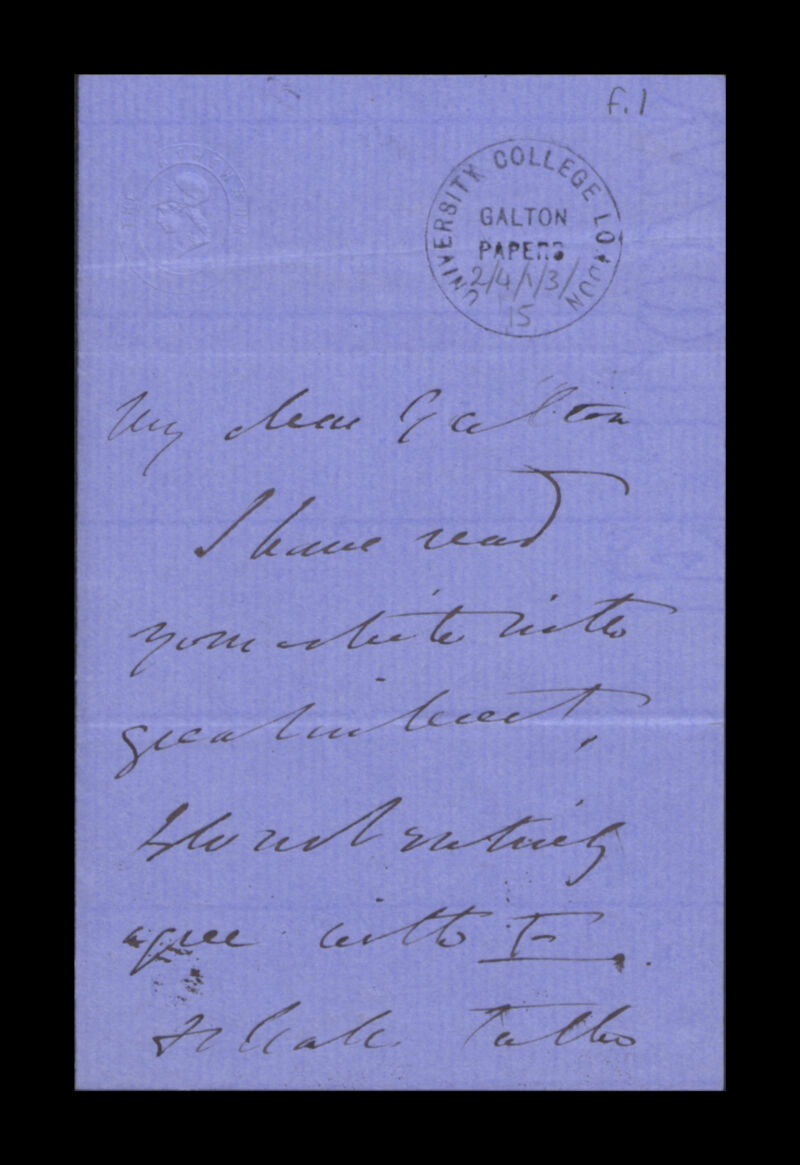 f.1
UNIVERSITY COLLEGE LONDON
GALTON
PAPERS
2/4/1/3/
15
My dear Galton
I have read
your article with
great interest,
I do not entirely
agree with F.
talks